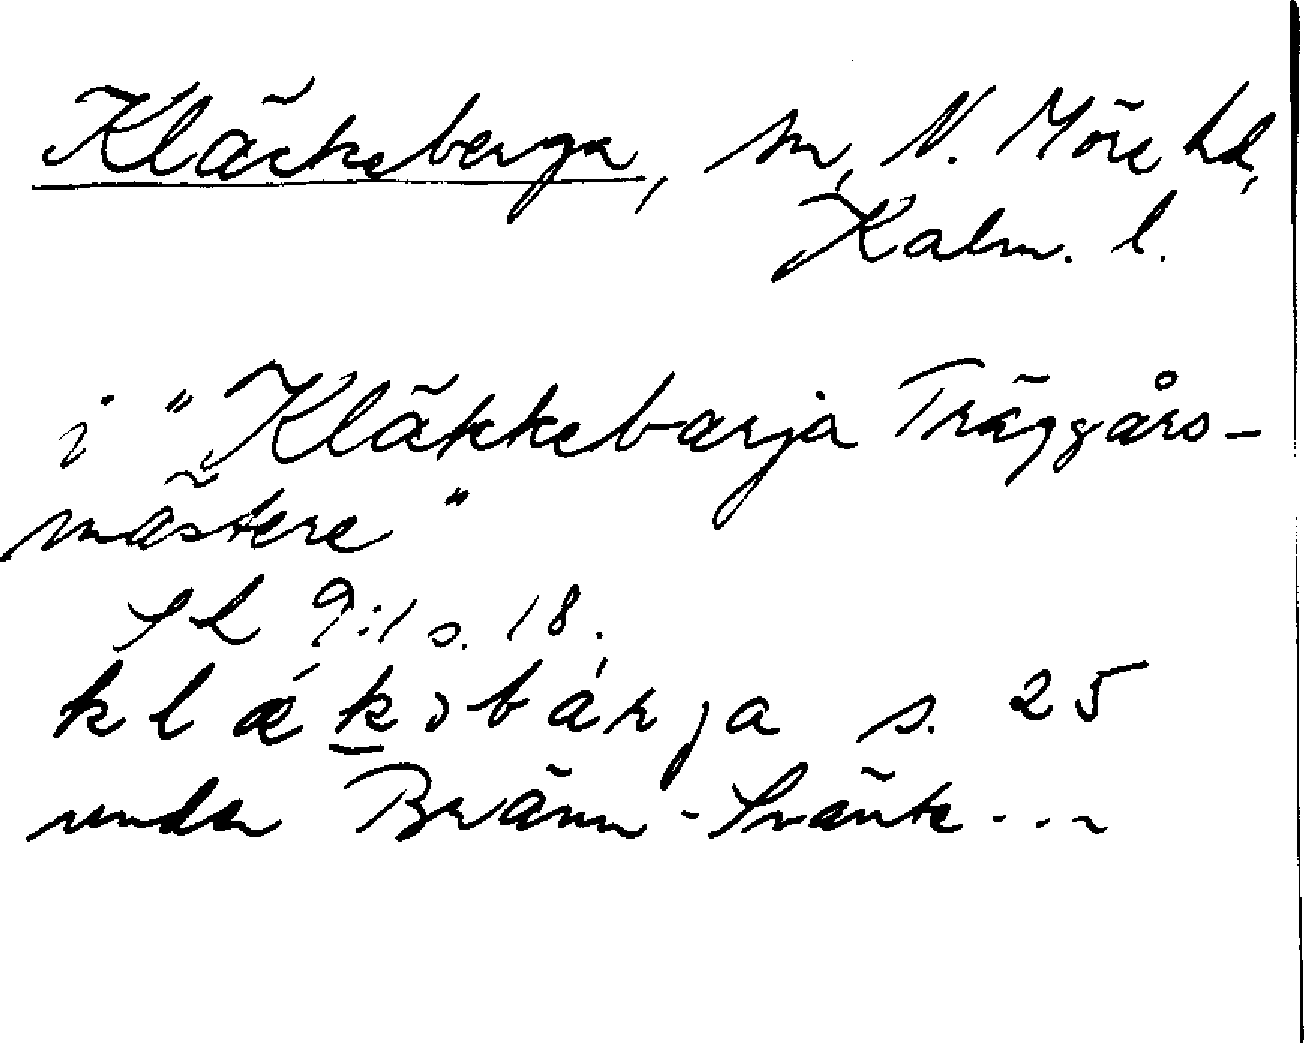 Kläckeberga, sn, N. Möre hd,
Kalm. l.
i "Kläkkebarja Träggårs-
mästere"
SL 9:1 s. 18.
klǽkəbárja s. 25
under Bränn-Svänte...